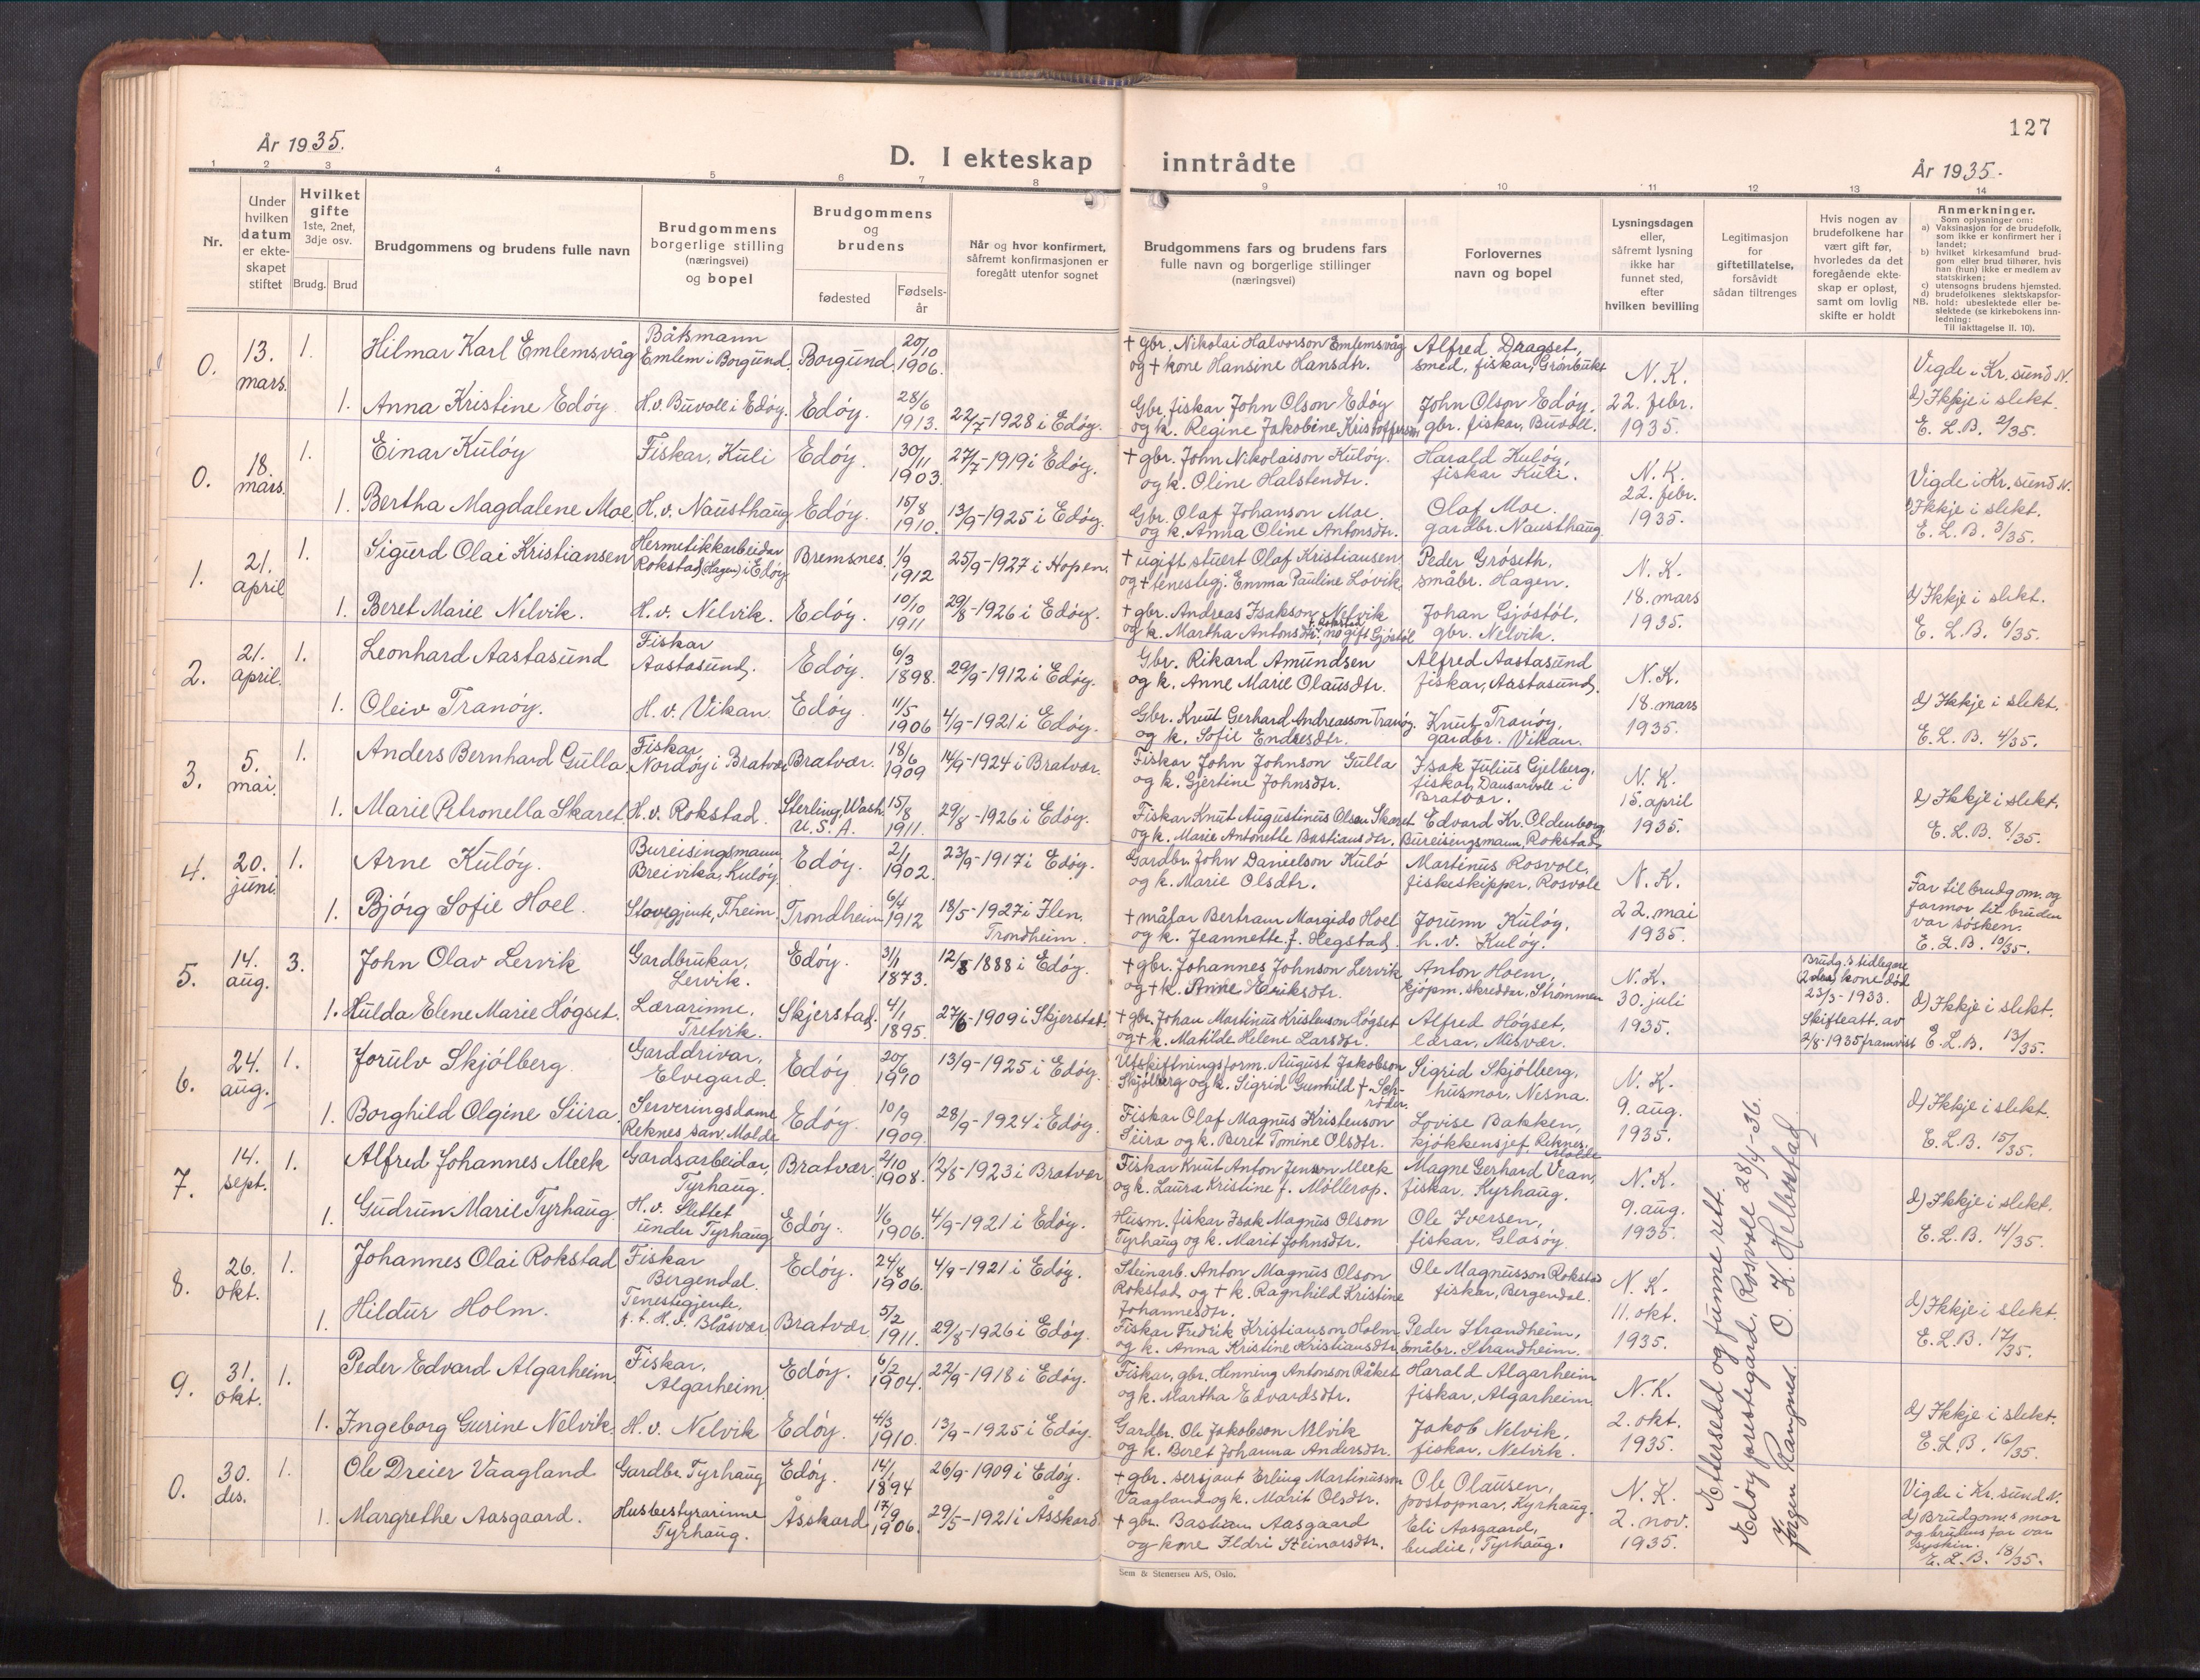 127
År 1935.
D. I ekteskap inntrådte
År 1935.
1 2 3 4 5 6 7 8 9 10 11 12 13 14
Nr.
Under hvilken datum er ekteskapet stiftet
Hvilket gifte
1ste, 2net, 3dje osv.
Brudg. Brud
Brudgommens og brudens fulle navn
Brudgommens borgerlige stilling (næringsvei) og bopel
Brudgommens og brudens
fødested
Fødselsår
Når og hvor konfirmert, såfremt konfirmasjonen er foregått utenfor sognet
Brudgommens fars og brudens fars fulle navn og borgerlige stillinger (næringsvei)
Forlovernes navn og bopel
Lysningsdagen eller, såfremt lysning ikke har funnet sted, efter hvilken bevilling
Legitimasjon for giftetillatelse, forsåvidt sådan tiltrenges
Hvis nogen av brudefolkene har vært gift før, hvorledes da det foregående ekteskap er opløst, samt om lovlig skifte er holdt
Anmerkninger.
Som oplysninger om:
a) Vaksinasjon for de brudefolk, som ikke er konfirmert her i landet;
b) hvilket kirkesamfund brudgom eller brud tilhører, hvis han (hun) ikke er medlem av statskirken;
c) utensogns brudens hjemsted.
d) brudefolkenes slektskapsforhold: ubeslektede eller beslektede (se kirkebokens innledning:
NB.
Til iakttagelse II. 10).
0. 13. mars. 1. Hilmar Karl Emlemsvåg Båtsmann Emlem i Borgund. Borgund. 20/10 1906. + gbr. Nikolai Halvorson Emlemsvåg og + kone Hansine Hansdtr. Alfred Dragset, smed, fiskar, Grønbukt N. K. 22. febr. 1935. Vigde i Kr. sund N.
1. Anna Kristine Edøy. H. v. Buvoll i Edøy. Edøy. 28/6 1913. 22/7-1928 i Edøy. Gbr. fiskar John Olson Edøy og k. Regine Jakobine Kristoffersdtr. John Olson Edøy, gbr. fiskar, Buvoll. d) Ikkje i slekt. E. L. B. 2/35.
0. 18. mars. 1. Einar Kuløy Fiskar, Kuli Edøy. 30/11 1903. 27/7-1919 i Edøy. + gbr. John Nikolaison Kuløy. og k. Oline Halstendtr. Harald Kuløy, fiskar Kuli. N. K. 22. febr. 1935. Vigde i Kr. sund N.
1. Bertha Magdalene Moe H. v. Nausthaug Edøy. 15/8 1910. 13/9-1925 i Edøy. Gbr. Olaf Johanson Moe og k. Anna Oline Antonsdtr. Olaf Moe. gardbr. Nausthaug. d) Ikkje i slekt. E. L. B. 3/35.
1. 21. april 1. Sigurd Olai Kristiansen Hermetikkarbeidar Rokstad (Hagen) i Edøy Bremsnes. 1/9 1912 25/9-1927 i Hopen. + ugift stuert Olaf Kristiansen og + tenestegj. Emma Pauline Løvik. Peder Grøseth, småbr. Hagen. N. K. 18. mars 1935.
1. Beret Marie Nelvik. H. v. Nelvik. Edøy. 10/10 1911 29/8-1926 i Edøy. + gbr. Andreas Isakson Nelvik og k. Martha Antonsdtr. f. Rokstad, no gift Gjøstøl Johan Gjøstøl, gbr. Nelvik. d) Ikkje i slekt. E. L. B. 6/35.
2. 21. april. 1. Leonhard Aastasund Fiskar Aastasund. Edøy. 6/3 1898. 29/9-1912 i Edøy. Gbr. Rikard Amundsen og k. Anne Marie Olausdtr. Alfred Aastasund fiskar, Aastasund. N. K. 18. mars 1935.
1. Oleiv Tranøy. H. v. Vikan. Edøy. 11/5 1906 4/9-1921 i Edøy. Gbr. Knut Gerhard Andreasson Tranøy. og k. Sofie Endresdtr. Knut Tranøy, gardbr. Vikan. d) Ikkje i slekt. E. L. B. 4/35.
3. 5. mai. 1. Anders Bernhard Gulla Fiskar Nordøy i Bratvær Bratvær. 18/6 1909 14/9-1924 i Bratvær. Fiskar John Johnson Gulla og k. Gjertine Johnsdtr. Isak Julius Gjelberg, fiskar, Dausarvoll i Bratvær. N. K. 15. april 1935.
1. Marie Petronella Skaret. H. v. Rokstad. Sterling, Wash. U. S. A. 15/8 1911. 29/8-1926 i Edøy. Fiskar Knut Augustinus Olsen Skaret og k. Marie Antonette Bastiansdtr. Edvard Kr. Oldenborg, Bureisingsmann, Rokstad. d) Ikkje i slekt. E. L. B. 8/35.
4. 20. juni. 1. Arne Kuløy. Bureisingsmann Breivika, Kuløy Edøy. 2/1 1902. 23/9-1917 i Edøy. Gardbr. John Danielson Kulø og k. Marie Olsdtr. Martinus Rosvoll, fiskeskipper, Rosvoll N. K. 22. mai 1935. Far til brudgom. og farmor til bruden var søsken. E. L. B. 10/35.
1. Bjørg Sofie Hoel. Stovegjente, T.heim. Trondheim 6/4 1912 18/5-1927 i Ilen. Trondheim. + målar Bertram Margido Hoel og k. Jeannette f. Hegstad. Jorunn Kuløy, h. v. Kuløy.
5. 14. aug. 3. John Olav Lervik Gardbrukar, Lervik. Edøy. 3/1 1873. 12/8 1888 i Edøy. + gbr. Johannes Johnson Lervik og + k. Anne Eriksdtr. Anton Hoem, kjøpm. skreddar, Strømmen N. K. 30. juli 1935. Brudg.s tidlegare (2dre) kone død 23/3-1933. Skifteatt. av 2/8-1935 framvist
1. Hulda Elene Marie Høgset. Lærarinne. Tretvik. Skjerstad. 4/1 1895. 27/6-1909 i Skjerstad. + gbr. Johan Martinus Kristenson Høgset og + k. Matilde Helene Larsdtr. Alfred Høgset, lærar, Misvær. d) Ikkje i slekt. E. L. B. 13/35.
6. 24. aug. 1. Jorulv Skjølberg Garddrivar, Elvegard. Edøy 20/6 1910 13/9-1925 i Edøy. Utskiftningsform. August Jakobson Skjølberg og k. Sigrid Gunhild f. Schrøder. Sigrid Skjølberg, husmor, Nesna. N. K. 9. aug. 1935.
1. Borghild Olgine Siira. Serveringsdame Reknes san. Molde Edøy. 10/9 1909. 28/9-1924 i Edøy. Fiskar Olaf Magnus Kristenson Siira og k. Beret Tomine Olsdtr. Lovise Bakken, kjøkkensjef, Reknes, Molde d) Ikkje i slekt. E. L. B. 15/35.
7. 14. sept. 1. Alfred Johannes Meek Gardsarbeidar, Tyrhaug. Bratvær 2/10 1908. 12/8-1923 i Bratvær Fiskar Knut Anton Jenson Meek og k. Laura Kristine f. Møllerop. Magne Gerhard Vean, fiskar. Kyrhaug. N. K. 9. aug. 1935.
1. Gudrun Marie Tyrhaug H. v. Slettet under Tyrhaug Edøy. 1/6 1906. 4/9-1921 i Edøy. Husm. fiskar Isak Magnus Olson Tyrhaug og k. Marit Johnsdtr. Ole Iversen, fiskar, Glasøy. d) Ikkje i slekt. E. L. B. 14/35.
8. 26. okt. 1. Johannes Olai Rokstad Fiskar Bergendal. Edøy. 24/8 1906. 4/9-1921 i Edøy. Steinarb. Anton Magnus Olson Rokstad og + k. Ragnhild Kristine Johannesdtr. Ole Magnusson Rokstad fiskar, Bergendal. N. K. 11. okt. 1935.
1. Hildur Holm. Tenestegjente, f. t. H. v. Blåsvær Bratvær 5/2 1911. 29/8-1926 i Edøy. Fiskar Fredrik Kristianson Holm og k. Anna Kristine Kristiansdtr. Peder Strandheim, småbr. Strandheim. d) Ikkje i slekt. E. L. B. 17/35.
9. 31. okt. 1. Peder Edvard Algarheim. Fiskar, Algarheim. Edøy. 6/2 1904. 22/9-1918 i Edøy. Fiskar, gbr. Henning Antonson Råket og k. Martha Edvardsdtr. Harald Algarheim fiskar, Algarheim. N. K. 2. okt. 1935.
1. Ingeborg Gurine Nelvik. H. v. Nelvik Edøy. 4/3 1910. 13/9-1925 i Edøy. Gardbr. Ole Jakobson Nelvik og k. Beret Johanna Andersdtr. Jakob Nelvik, fiskar, Nelvik. d) Ikkje i slekt. E. L. B. 16/35.
0. 30. des. 1. Ole Dreier Vaagland Gardbr. Tyrhaug Edøy. 14/1 1894 26/9-1909 i Edøy. + gbr. sersjant Erling Martinusson Vaagland og k. Marit Olsdtr. Ole Olausen, postopnar, Kyrhaug. N. K. 2. nov. 1935. Vigde i Kr. sund N.
1. Margrethe Aasgaard. Husbestyrarinne Tyrhaug. Åsskard 17/9 1906. 29/5-1921 i Åsskard. + gbr. Bastian Aasgaard og kone Ildri Steinarsdtr. Eli Aasgaard, budeie, Tyrhaug. d) Brudgom.s mor og brudens far var syskin. E. L. B. 18/35.
Ettersedd og funne rett.
Edøy prestegard, Rosvoll 28/4-36.
Jørgen Rangnes. O. K. Helberstad
Sem & Stenersen A/S, Oslo.